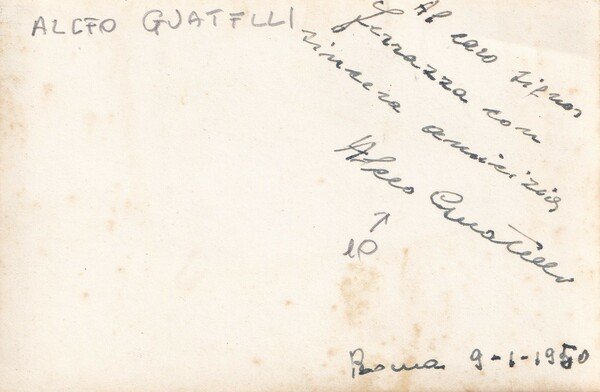 ALCEO GUATELLI
Al caro signor
con
sincera amicizia
Alceo Guatelli
↑
Roma 9-1-1950